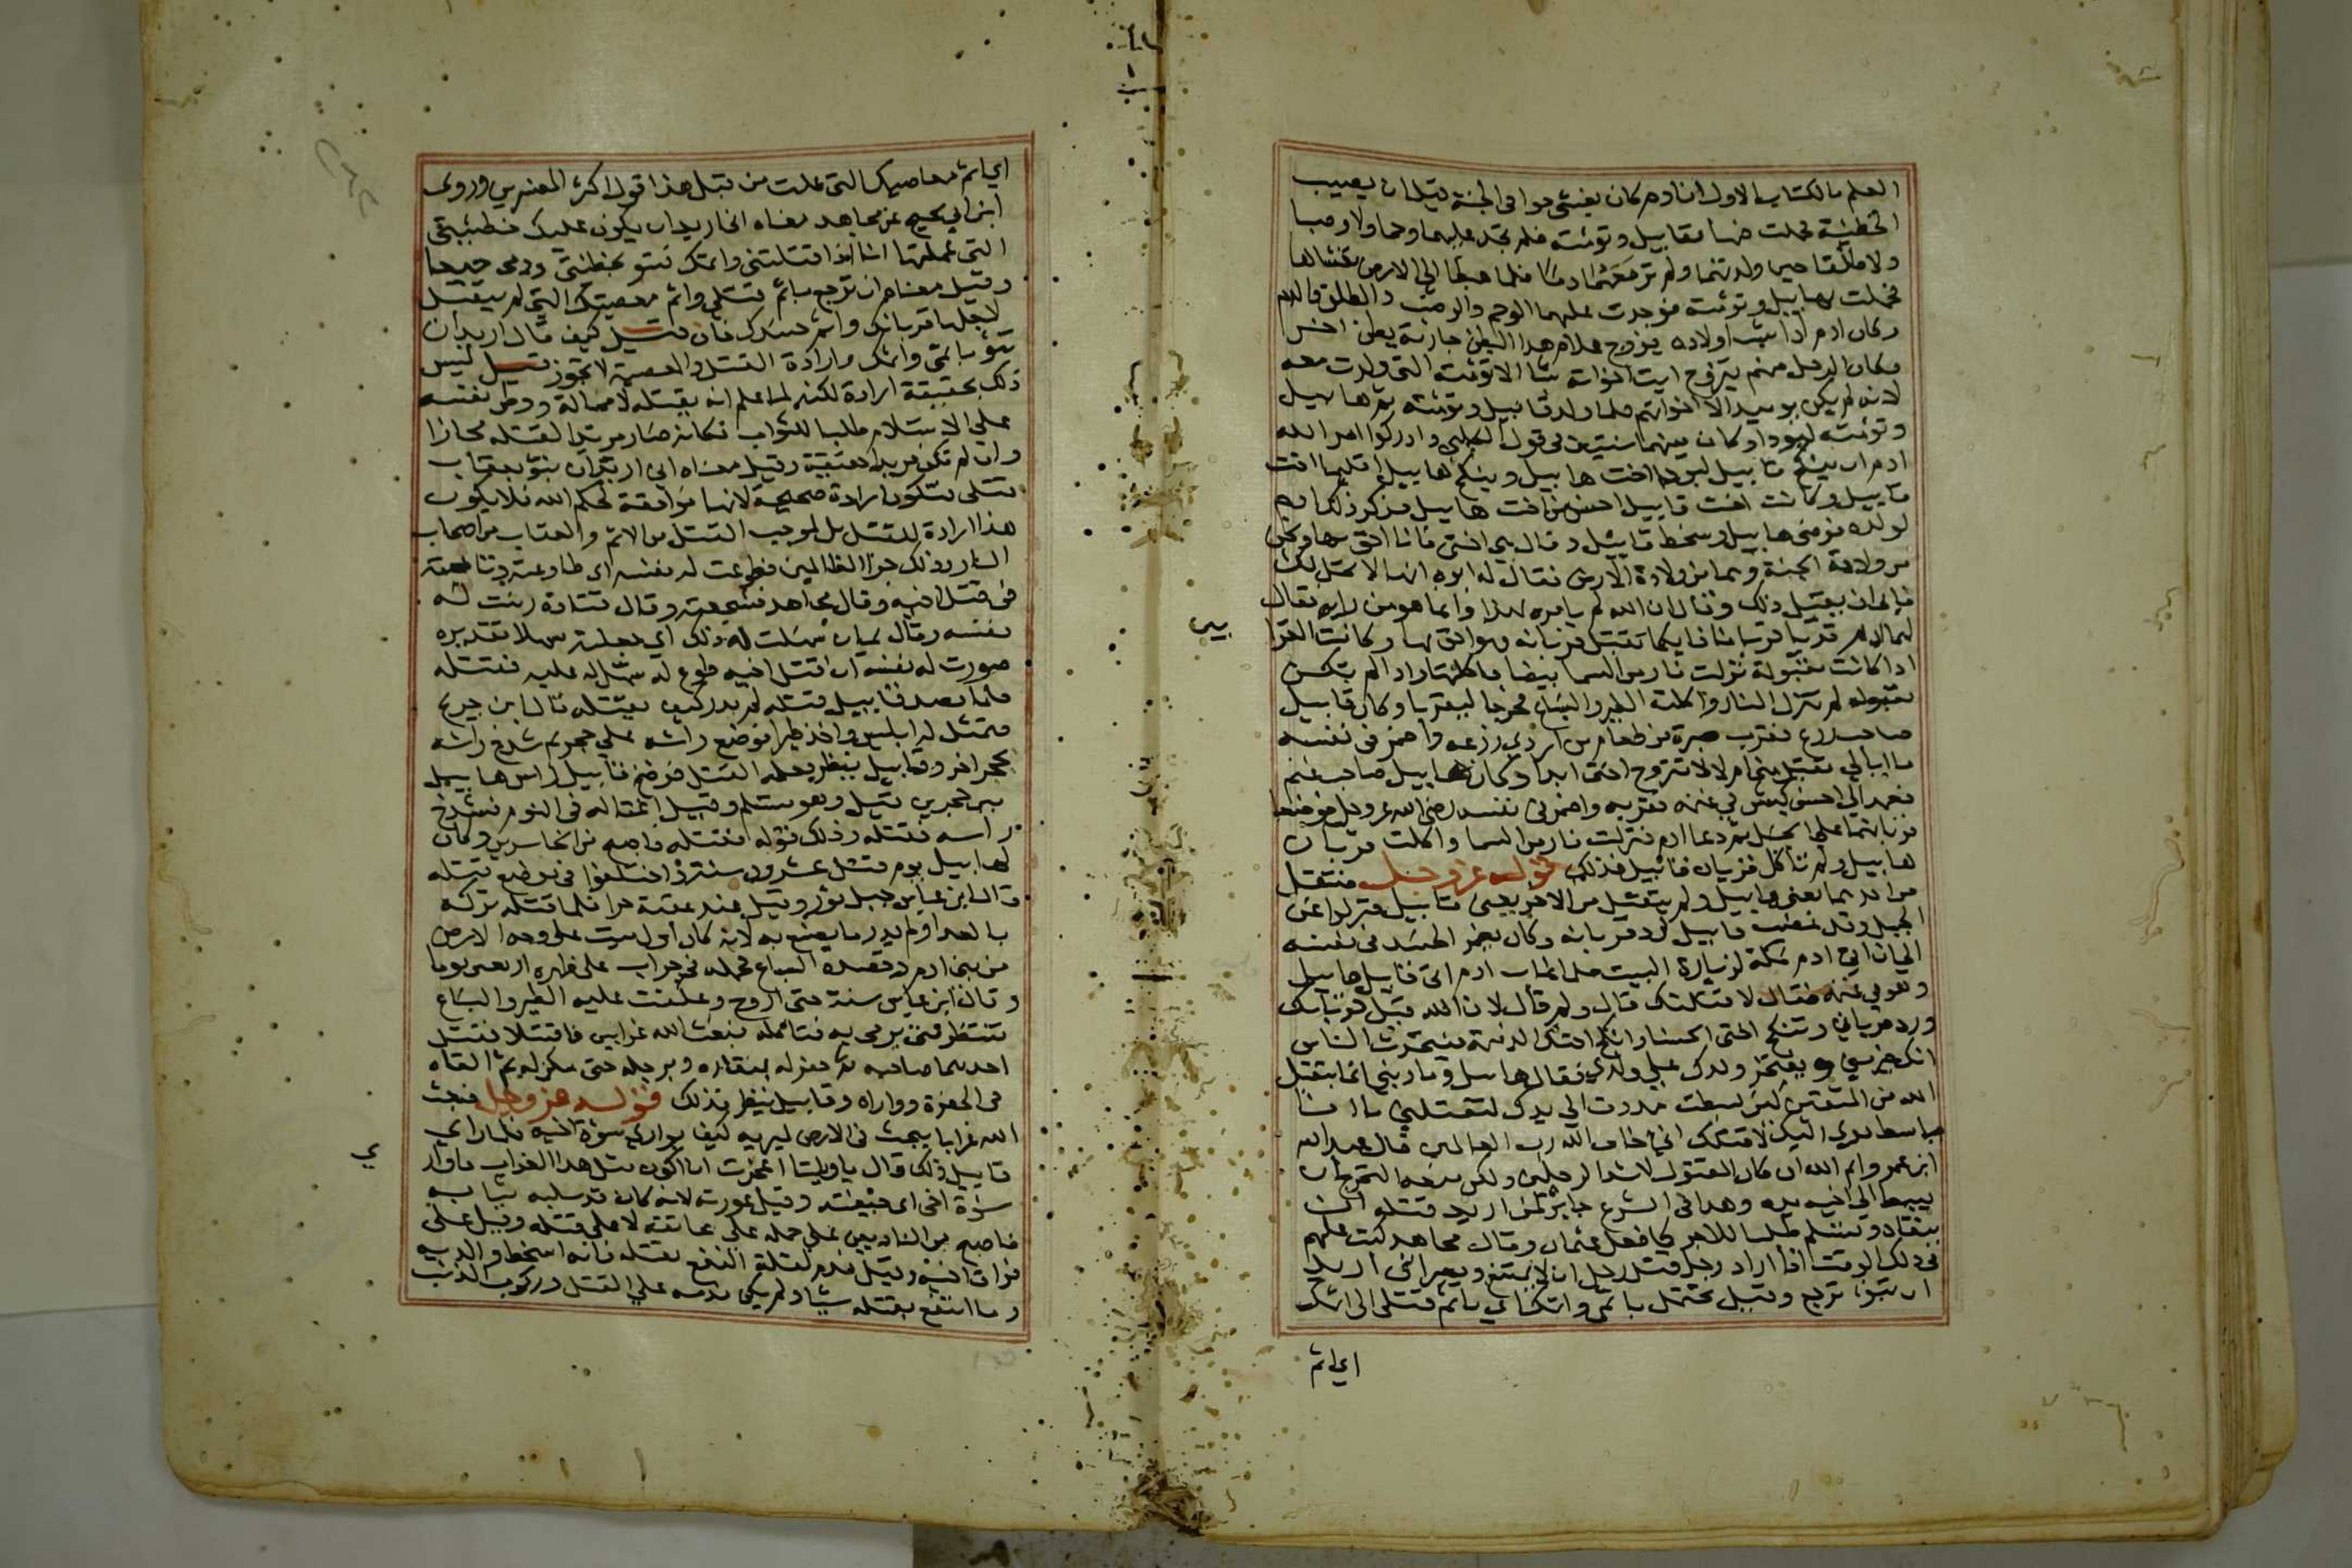 العلم بالكتاب الاول ان ادم كان يغشى حوا في الجنة قبل ان يصيب
الخطيئة فحملت فيها بقابيل وتوئمته فلم تجد عليهما وحما ولا وصبا
ولا طلقا حين ولدتهما ولم تر معهما دما فلما هبطا الى الارض تغشاها
فحملت بهابيل وتوئمته فوجدت عليهما الوحم والوصب والطلق والدم
وكان ادم اذا شب اولاده يزوج غلام هذا البطن جارية بطن اخر
وكان الرجل منهم يتزوج ايت اخواته شا الا توئمته التي ولدت معه
لانه لم يكن يوميذ الا اخواتهم فلما ولد قابيل وتوئمته ثم هابيل
وتوئمته لبودا وكان بينهما سنتين في قول الكلبي وادركوا امر الله
ادم ان ينكح قابيل لبودا اخت هابيل وينكح هابيل اقليما اخت
قابيل وكانت اخت قابيل احسن من اخت هابيل فذكر ذلك ادم
لولده فرضي هابيل وسخط قابيل وقال هي اختي فانا احق بها ونحن
من ولادة الجنة وهما من ولادة الارض فقال له ابوه انها لا تحل لك
فابى ان يقبل ذلك وقال ان الله لم يامره بهذا وانما هو من رايه فقال
لهما ادم قربا قربانا فايكما تقبل قربانه فهو احق بها وكانت القرا
بين
اذا كانت مقبولة نزلت نار من السما بيضا فاكلتها واذا لم تكن
مقبوله لم تنزل النار واكلته الطير والسباع فخرجا ليقربا وكان قابيل
صاحب زرع فقرب صبرة من طعام من اردى زرعه واضمر في نفسه
ما ابالي تقبل مني ام لا لا تتزوج اختي ابدا وكان هابيل صاحب غنم
فعمد الى احسن كبش في غنمه فقربه واضمر في نفسه رضى الله عز وجل فوضعا
قربانهما على الجبل ثم دعا ادم فنزلت نار من السما واكلت قربان
هابيل ولم تاكل قربان قابيل فذلك قوله عز وجل فتقبل
من احدهما يعني هابيل ولم يتقبل من الاخر يعني قابيل فنزلوا عن
الجبل وقد غضب قابيل لرد قربانه وكان يضمر الحسد في نفسه
الى ان اتى ادم مكة لزيارة البيت فلما غاب ادم اتى قابيل هابيل
وهو في غنمه فقال لاقتلنك قال ولم قال لان الله قبل قربانك
ورد قرباني وتنكح اختي الحسنا وانكح اختك الدميمة فيتحدث الناس
انك خير مني ويفتخر ولدك على ولدي فقال هابيل وما ذنبي انما يتقبل
الله من المتقين لئن بسطت مددت الي يدك لتقتلني ما انا
بباسط يدي اليك لاقتلك اني اخاف الله رب العالمين قال عبد الله
ابن عمر وايم الله ان كان المقتول لاشد الرجلين ولكن منعه التحرج ان
يبسط الى اخيه يده وهذا في الشرع جايز لمن اريد قتله ان
ينقاد ويستسلم طلبا للاجر كما فعل عثمان وقال مجاهد كتب عليهم
في ذلك الوقت اذا اراد رجل قتل رجل ان لا يمتنع ويصبر اني اريد
ان تبوء ترجع وقيل تحتمل باثمي واثمك اي باثم قتلي الى اثمك
اي اثم
اي اثم معاصيك التي عملت من قبل هذا قول اكثر المفسرين وروى
ابن ابي نجيح عن مجاهد معناه اني اريد ان يكون عليك خطيئتي
التي عملتها انا اذا قتلتني واثمك فتبو بخطيئتي ودمي جميعا
وقيل معناه ان ترجع باثم قتلي واثم معصيتك التي لم يتقبل
لاجلها قربانك واثم حسدك فان قيل كيف قال اريد ان
تبو باثمي واثمك وارادة القتل والمعصية لا تجوز قيل ليس
ذلك بحقيقة ارادة لكنه لما علم انه يقتله لا محالة ووطن نفسه
على الاستسلام طلبا للثواب فكانه صار مريدا لقتله مجازا
وان لم تكن مريدا حقيقة وقيل معناه اني اريد ان تبو بعقاب
قتلي فتكون ارادة صحيحة لانها موافقة لحكم الله فلا يكون
هذا ارادة للقتل بل لموجب القتل من الاثم والعقاب من اصحاب
النار وذلك جزا الظالمين فطوعت له نفسه اي طاوعته وتابعته
في قتل اخيه وقال مجاهد فشجعته وقال قتادة زينت له
نفسه وقال يمان سهلت له ذلك اي جعلته سهلا تقديره
صورت له نفسه ان قتل اخيه طوع له سهل له عليه فقتله
فلما قصد قابيل قتله لم يدر كيف يقتله قال ابن جريج
فتمثل له ابليس واخذ طيرا فوضع راسه على حجر ثم شدخ راسه
بحجر اخر وقابيل ينظر فعلمه القتل فرضخ قابيل راس هابيل
بين حجرين قيل وهو مستسلم وقيل اغتاله في النوم فشدخ
راسه فقتله وذلك قوله فقتله فاصبح من الخاسرين وكان
لهابيل يوم قتل عشرون سنة واختلفوا في موضع قتله
قال ابن عباس جبل نوذ وقيل عند عقبة حرا فلما قتله تركه
بالعراء ولم يدر ما يصنع به لانه كان اول ميت على وجه الارض
من بني ادم وقصده السباع فحمله في جراب على ظهره اربعين يوما
وقال ابن عباس سنة حتى اروح وعكفت عليه الطير والسباع
تنتظر متى يرمى به فتاكله فبعث الله غرابين فاقتتلا فقتل
احدهما صاحبه ثم حفر له بمنقاره وبرجله حتى مكن له ثم القاه
في الحفرة وواراه وقابيل ينظر فذلك قوله عز وجل فبعث
الله غرابا يبحث في الارض ليريه كيف يواري سوءة اخيه فلما راى
ي
قابيل ذلك قال يا ويلتا اعجزت ان اكون مثل هذا الغراب فاواري
سوءة اخي اي جيفته وقيل عورته لانه كان قد سلبه ثيابه
فاصبح من النادمين على حمله على عاتقه لا على قتله وقيل على
فوات اخيه وقيل ندم لقلة النفع بقتله فانه اسخط والديه
وما انتفع بقتله شيئا ولم يكن ندمه على القتل وركوب الذنب